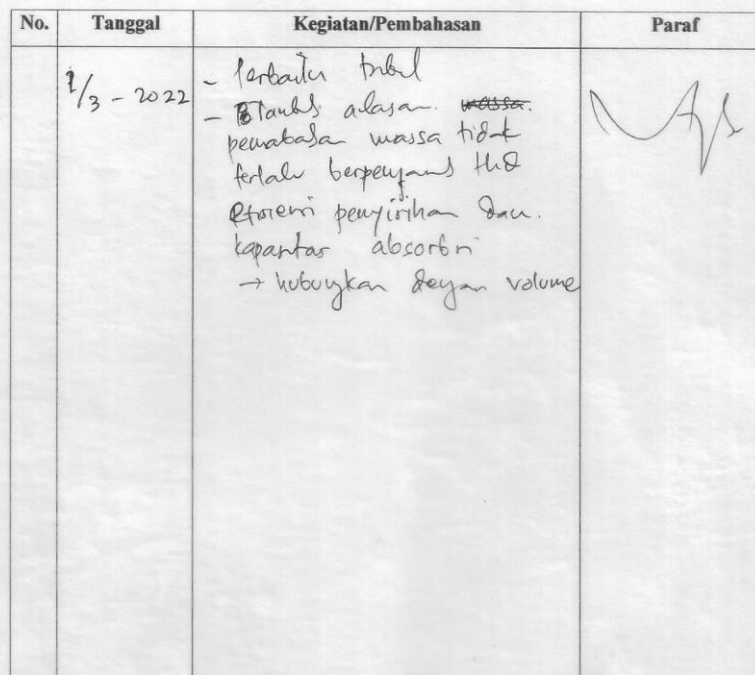 No. Tanggal Kegiatan/Pembahasan Paraf
1/3 - 2022 - Perbaiki tabel
- Tambah alasan. massa.
penambahan massa tidak
terlalu berpengaruh thd
efisiensi penyisihan dan.
kapasitas absorbsi
→ hubungkan dengan volume